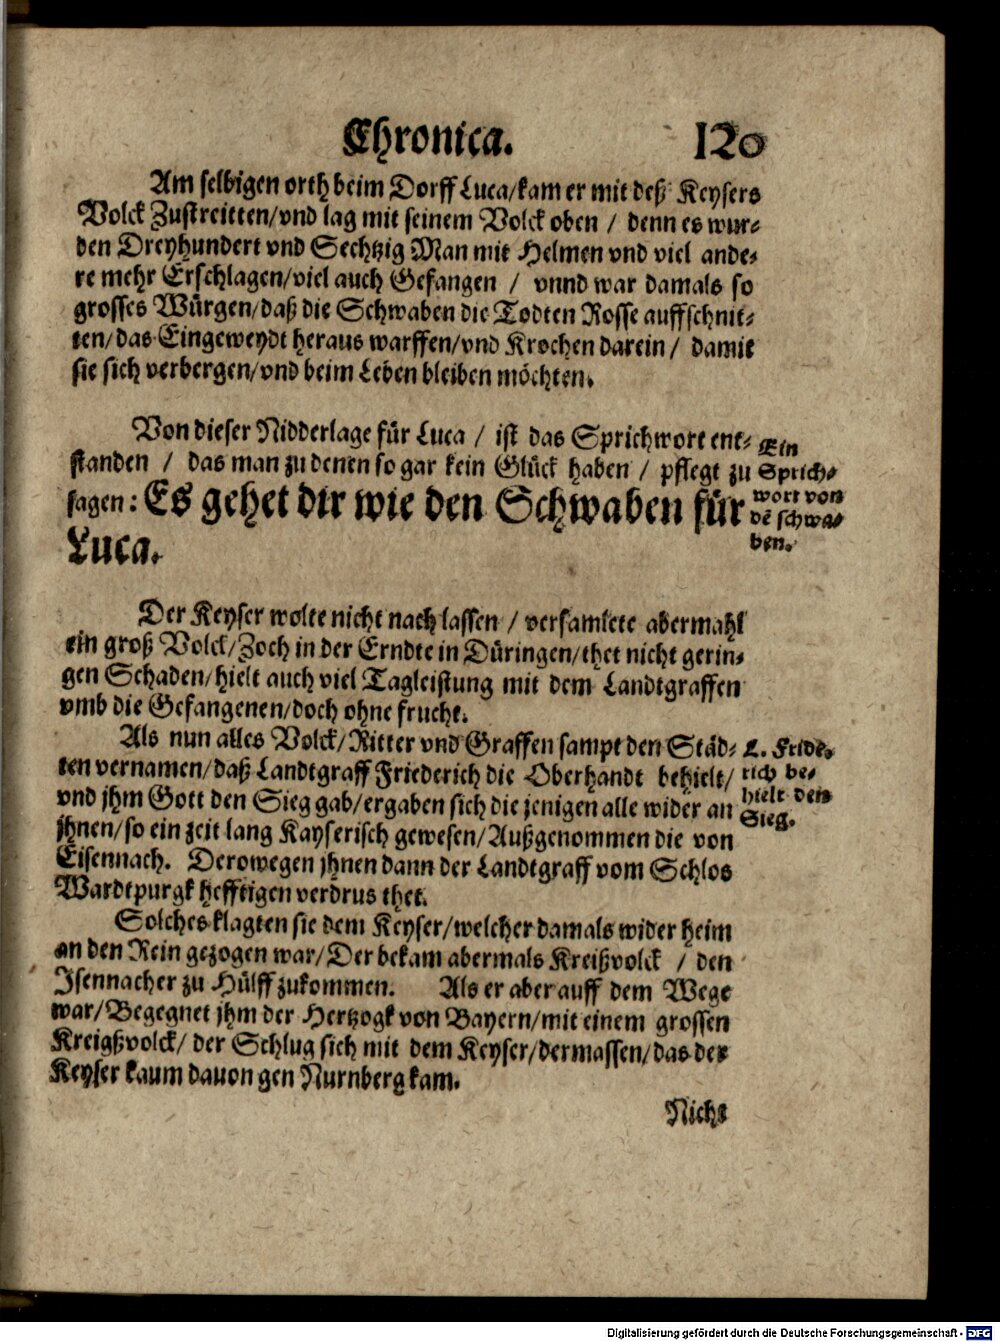 Chronica. 120
Am selbigen orth beim Dorff Luca/kam er mit deß Keysers
Volck Zustreitten/vnd lag mit seinem Volck oben / denn es wur-
den Dreyhundert vnd Sechtzig Man mit Helmen vnd viel ande-
re mehr Erschlagen/viel auch Gefangen / vnnd war damals so
grosses Würgen/daß die Schwaben die Todten Rosse auffschnit-
ten/das Eingeweydt heraus warffen/vnd Krochen darein / damit
sie sich verbergen/vnd beim Leben bleiben möchten.
Von dieser Nidderlage für Luca / ist das Sprichwort ent-
standen / das man zu denen so gar kein Glück haben / pflegt zu
sagen: Es gehet dir wie den Schwaben für
Luca.
Ein
Sprich-
wort von
dē schwa-
ben.
Der Keyser wolte nicht nach lassen / versamlete abermahl
ein groß Volck/Zoch in der Erndte in Düringen/thet nicht gerin-
gen Schaden/hielt auch viel Tagleistung mit dem Landtgraffen
vmb die Gefangenen/doch ohne frucht.
Als nun alles Volck/Ritter vnd Graffen sampt den Städ-
ten vernamen/daß Landtgraff Friederich die Oberhandt behielt/
vnd jhm Gott den Sieg gab/ergaben sich die jenigen alle wider an
jhnen/so ein zeit lang Kayserisch gewesen/Außgenommen die von
Eisennach. Derowegen jhnen dann der Landtgraff vom Schlos
Wardtpurgk hefftigen verdrus thet.
L. Fride-
rich be-
hielt den
Sieg.
Solches klagten sie dem Keyser/welcher damals wider heim
an den Rein gezogen war/Der bekam abermals Kreißvolck / den
Isennacher zu Hülff zukommen. Als er aber auff dem Wege
war/Begegnet jhm der Hertzogk von Bayern/mit einem grossen
Kreigßvolck/ der Schlug sich mit dem Keyser/dermassen/das der
Keyser kaum dauon gen Nurnberg kam.
Nicht
Digitalisierung gefördert durch die Deutsche Forschungsgemeinschaft - DFG